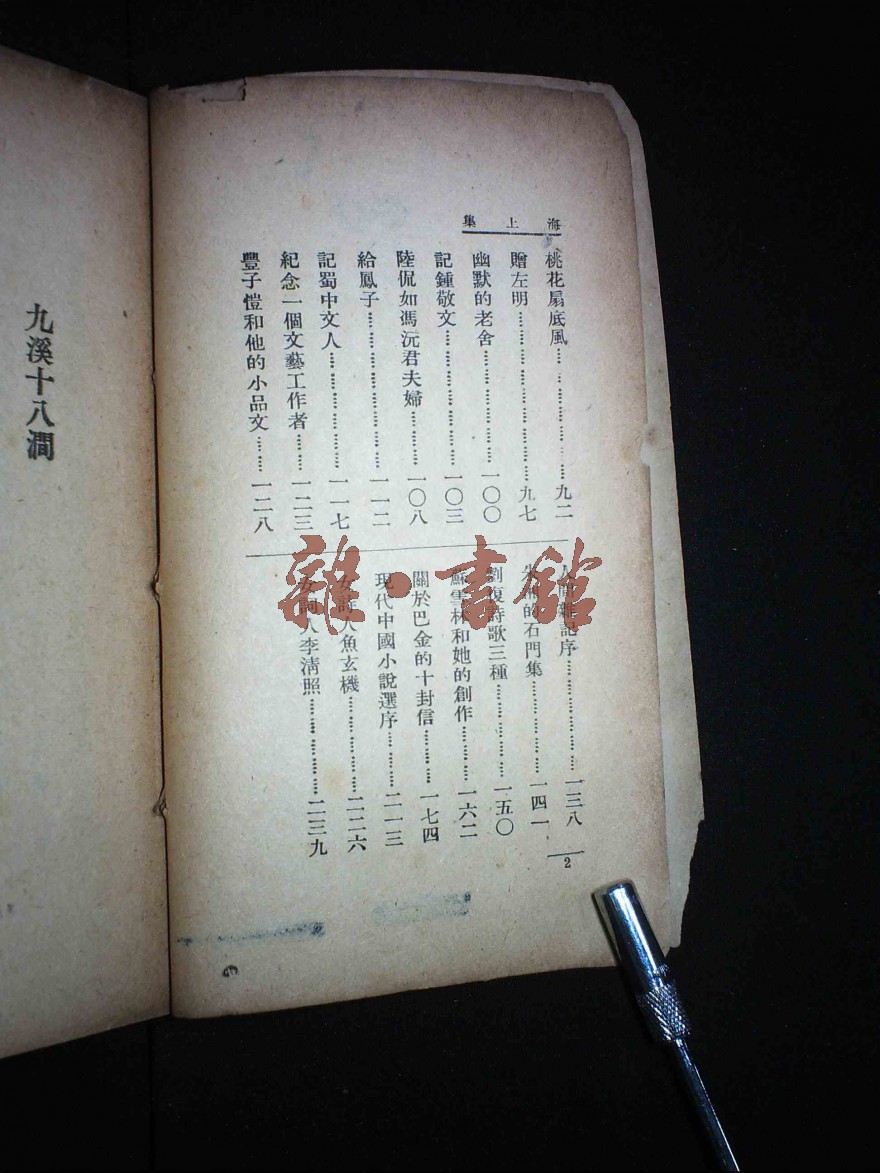 海上集
桃花扇底風……九二
贈左明……九七
幽默的老舍……一〇〇
記鍾敬文……一〇三
陸侃如馮沅君夫婦……一〇八
給鳳子……一一二
記蜀中文人……一一七
紀念一個文藝工作者……一二三
豐子愷和他的小品文……一二八
人間雜記序……一三八
朱湘的石門集……一四一
劉復詩歌三種……一五〇
蘇雪林和她的創作……一六二
關於巴金的十封信……一七四
現代中國小說選序……二一三
女詩人魚玄機……二二六
女詞人李清照……二三九
2
九溪十八澗
雜·書館